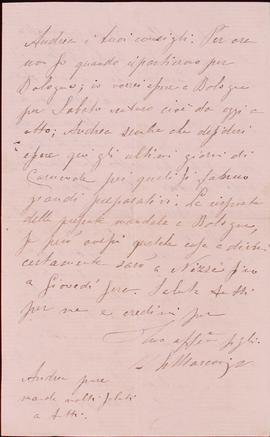 Andrea i tuoi consigli. Per ora
non so quando ripartiremo per
Bologna; io vorrei essere a Bologna
per Sabato venturo cioè da oggi a
otto; Andrea sembra che desideri
essere qui gli ultimi giorni di
Carnevale per quali si fanno
grandi preparativi. La risposta
della presente mandala a Bologna,
Se però avessi qualche cosa a dirmi
certamente sarò a Nizza fino
a Giovedì sera. Saluta tutti
per me e credimi pure
Tuo affmo figlio
GMarconi
Andrea pure
manda molti saluti
a tutti.